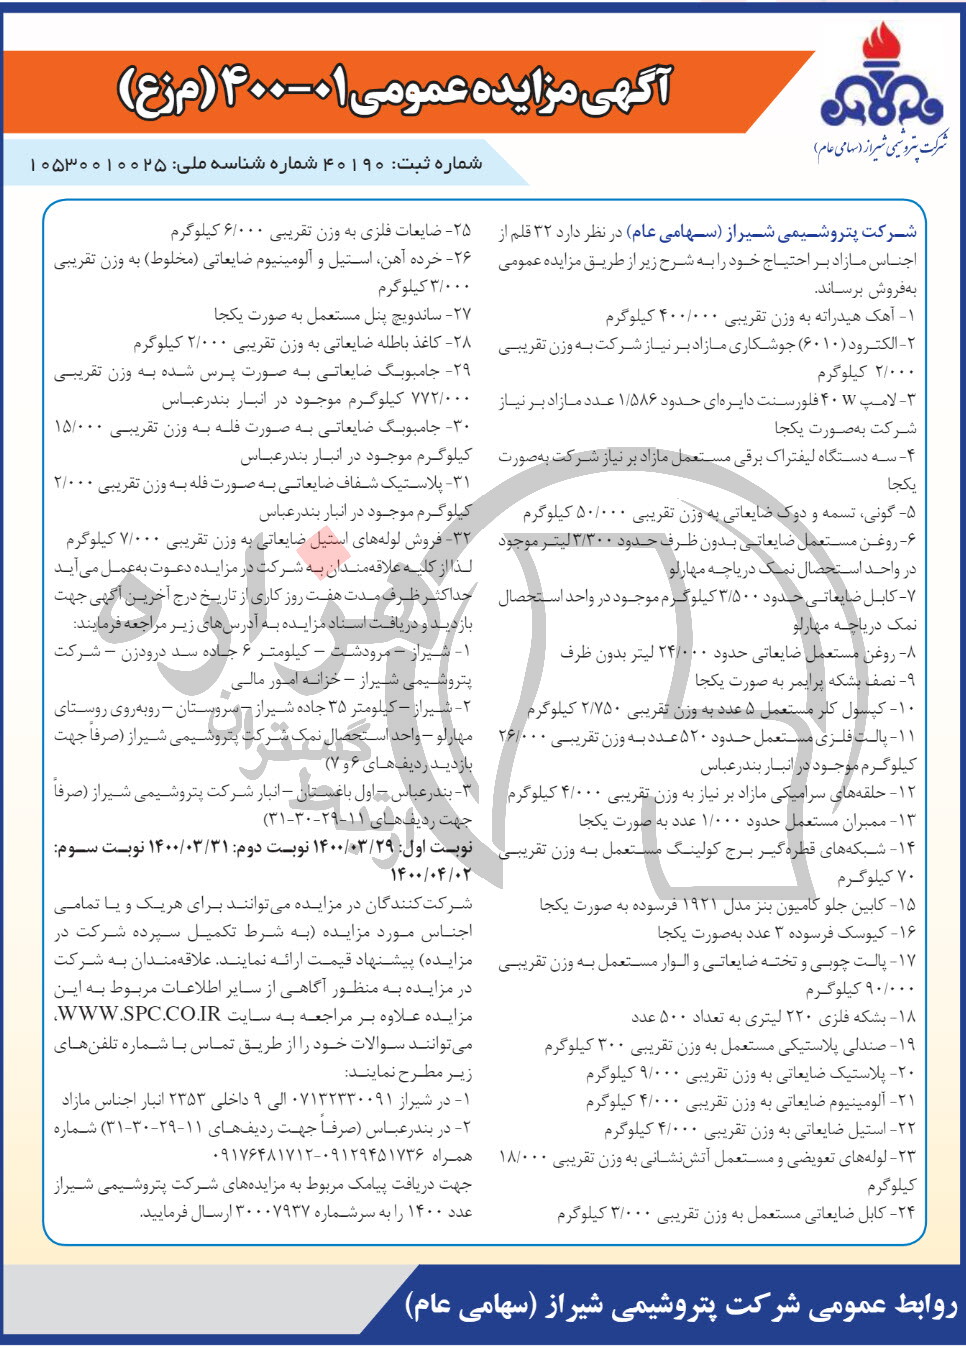 آگهی مزایده عمومی ۰۱-۴۰۰ (م ز ع)
شرکت پتروشیمی شیراز (سهامی عام)
شماره ثبت: ۴۰۱۹۰ شماره شناسه ملی: ۱۰۵۳۰۰۱۰۰۲۵
شرکت پتروشیمی شیراز (سهامی عام) در نظر دارد ۳۲ قلم از
اجناس مازاد بر احتیاج خود را به شرح زیر از طریق مزایده عمومی
به‌فروش برساند.
۱- آهک هیدراته به وزن تقریبی ۴۰۰/۰۰۰ کیلوگرم
۲- الکترود (۶۰۱۰) جوشکاری مازاد بر نیاز شرکت به وزن تقریبی
۲/۰۰۰ کیلوگرم
۳- لامپ ۴۰ w فلورسنت دایره‌ای حدود ۱/۵۸۶ عدد مازاد بر نیاز
شرکت به‌صورت یکجا
۴- سه دستگاه لیفتراک برقی مستعمل مازاد بر نیاز شرکت به‌صورت
یکجا
۵- گونی، تسمه و دوک ضایعاتی به وزن تقریبی ۵۰/۰۰۰ کیلوگرم
۶- روغن مستعمل ضایعاتی بدون ظرف حدود ۳/۳۰۰ لیتر موجود
در واحد استحصال نمک دریاچه مهارلو
۷- کابل ضایعاتی حدود ۳/۵۰۰ کیلوگرم موجود در واحد استحصال
نمک دریاچه مهارلو
۸- روغن مستعمل ضایعاتی حدود ۲۴/۰۰۰ لیتر بدون ظرف
۹- نصف بشکه پرایمر به صورت یکجا
۱۰- کپسول کلر مستعمل ۵ عدد به وزن تقریبی ۲/۷۵۰ کیلوگرم
۱۱- پالت فلزی مستعمل حدود ۵۲۰ عدد به وزن تقریبی ۲۶/۰۰۰
کیلوگرم موجود در انبار بندرعباس
۱۲- حلقه‌های سرامیکی مازاد بر نیاز به وزن تقریبی ۴/۰۰۰ کیلوگرم
۱۳- ممبران مستعمل حدود ۱/۰۰۰ عدد به صورت یکجا
۱۴- شبکه‌های قطره‌گیر برج کولینگ مستعمل به وزن تقریبی
۷۰ کیلوگرم
۱۵- کابین جلو کامیون بنز مدل ۱۹۲۱ فرسوده به صورت یکجا
۱۶- کیوسک فرسوده ۳ عدد به‌صورت یکجا
۱۷- پالت چوبی و تخته ضایعاتی و الوار مستعمل به وزن تقریبی
۹۰/۰۰۰ کیلوگرم
۱۸- بشکه فلزی ۲۲۰ لیتری به تعداد ۵۰۰ عدد
۱۹- صندلی پلاستیکی مستعمل به وزن تقریبی ۳۰۰ کیلوگرم
۲۰- پلاستیک ضایعاتی به وزن تقریبی ۹/۰۰۰ کیلوگرم
۲۱- آلومینیوم ضایعاتی به وزن تقریبی ۴/۰۰۰ کیلوگرم
۲۲- استیل ضایعاتی به وزن تقریبی ۴/۰۰۰ کیلوگرم
۲۳- لوله‌های تعویضی و مستعمل آتش‌نشانی به وزن تقریبی ۱۸/۰۰۰
کیلوگرم
۲۴- کابل ضایعاتی مستعمل به وزن تقریبی ۳/۰۰۰ کیلوگرم
۲۵- ضایعات فلزی به وزن تقریبی ۶/۰۰۰ کیلوگرم
۲۶- خرده آهن، استیل و آلومینیوم ضایعاتی (مخلوط) به وزن تقریبی
۳/۰۰۰ کیلوگرم
۲۷- ساندویچ پنل مستعمل به صورت یکجا
۲۸- کاغذ باطله ضایعاتی به وزن تقریبی ۲/۰۰۰ کیلوگرم
۲۹- جامبوبگ ضایعاتی به صورت پرس شده به وزن تقریبی
۷۷۲/۰۰۰ کیلوگرم موجود در انبار بندرعباس
۳۰- جامبوبگ ضایعاتی به صورت فله به وزن تقریبی ۱۵/۰۰۰
کیلوگرم موجود در انبار بندرعباس
۳۱- پلاستیک شفاف ضایعاتی به صورت فله به وزن تقریبی ۲/۰۰۰
کیلوگرم موجود در انبار بندرعباس
۳۲- فروش لوله‌های استیل ضایعاتی به وزن تقریبی ۷/۰۰۰ کیلوگرم
لذا از کلیه علاقه‌مندان به شرکت در مزایده دعوت به‌عمل می‌آید
حداکثر ظرف مدت هفت روز کاری از تاریخ درج آخرین آگهی جهت
بازدید و دریافت اسناد مزایده به آدرس‌های زیر مراجعه فرمایند:
۱- شیراز – مرودشت – کیلومتر ۶ جاده سد درودزن – شرکت
پتروشیمی شیراز – خزانه امور مالی
۲- شیراز – کیلومتر ۳۵ جاده شیراز – سروستان – روبه‌روی روستای
مهارلو – واحد استحصال نمک شرکت پتروشیمی شیراز (صرفاً جهت
بازدید ردیف‌های ۶ و ۷)
۳- بندرعباس – اول باغستان – انبار شرکت پتروشیمی شیراز (صرفاً
جهت ردیف‌های ۱۱-۲۹-۳۰-۳۱)
نوبت اول: ۱۴۰۰/۰۳/۲۹ نوبت دوم: ۱۴۰۰/۰۳/۳۱ نوبت سوم:
۱۴۰۰/۰۴/۰۲
شرکت‌کنندگان در مزایده می‌توانند برای هریک و یا تمامی
اجناس مورد مزایده (به شرط تکمیل سپرده شرکت در
مزایده) پیشنهاد قیمت ارائه نمایند. علاقه‌مندان به شرکت
در مزایده به منظور آگاهی از سایر اطلاعات مربوط به این
مزایده علاوه بر مراجعه به سایت WWW.SPC.CO.IR،
می‌توانند سوالات خود را از طریق تماس با شماره تلفن‌های
زیر مطرح نمایند:
۱- در شیراز ۰۷۱۳۲۳۳۰۰۹۱ الی ۹ داخلی ۲۳۵۳ انبار اجناس مازاد
۲- در بندرعباس (صرفاً جهت ردیف‌های ۱۱-۲۹-۳۰-۳۱) شماره
همراه ۰۹۱۲۹۴۵۱۷۳۶-۰۹۱۷۶۴۸۱۷۱۲
جهت دریافت پیامک مربوط به مزایده‌های شرکت پتروشیمی شیراز
عدد ۱۴۰۰ را به سرشماره ۳۰۰۰۷۹۳۷ ارسال فرمایید.
هزاره
گستران
ارتباط
روابط عمومی شرکت پتروشیمی شیراز (سهامی عام)